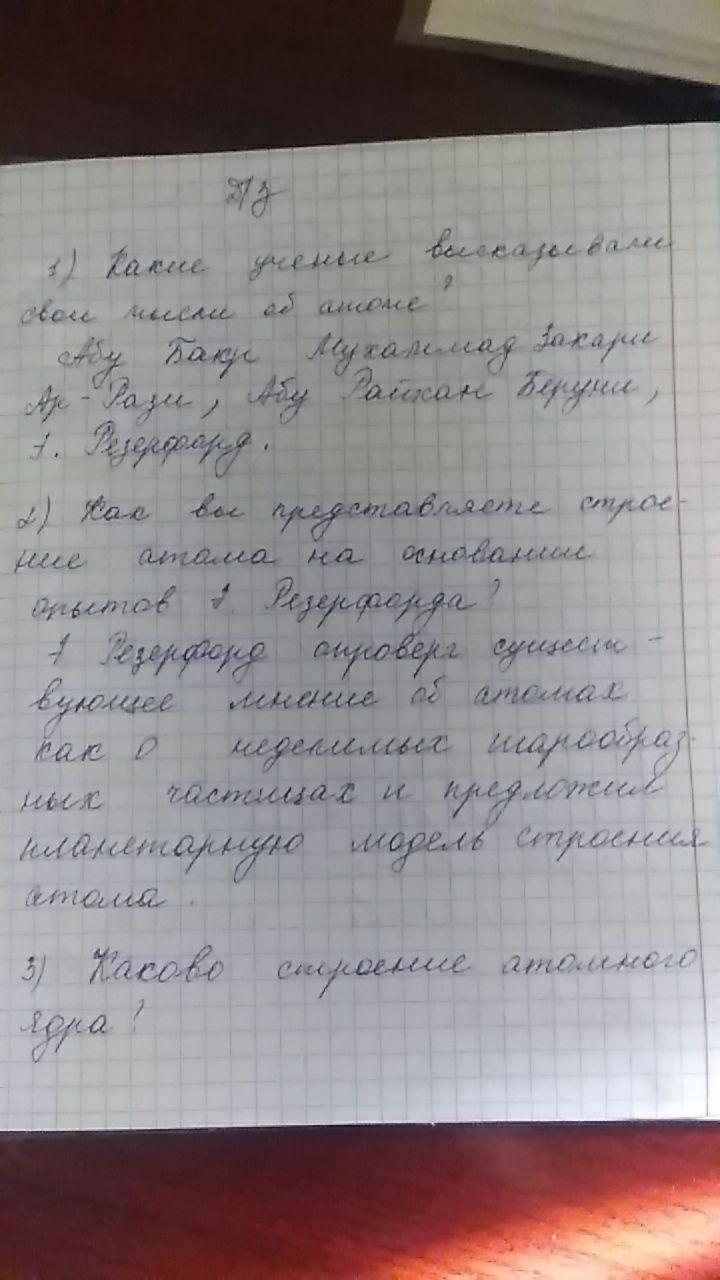 Д/з
1) Какие ученые высказывали
свои мысли об атоме?
Абу Бакр Мухаммад Закари
Ар-Рази, Абу Райхан Беруни,
Э. Резерфорд.
2) Как вы представляете строе-
ние атома на основании
опытов Э. Резерфорда?
Э Резерфорд опроверг сущест-
вующее мнение об атомах
как о неделимых шарообраз-
ных частицах и предложил
планетарную модель строения
атома.
3) Каково строение атомного
ядра?